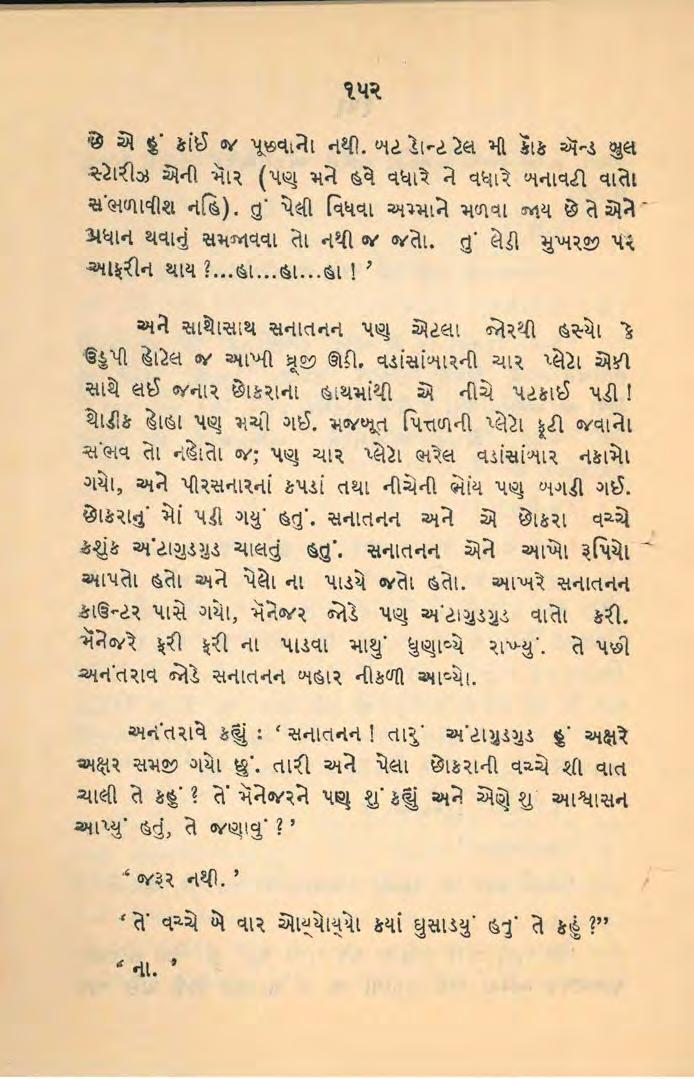 ૧૫૨
છે એ હું કાંઈ જ પૂછવાનો નથી. બટ ડોન્ટ ટેલ મી કૉક ઍન્ડ બુલ
સ્ટોરીઝ એની મૉર (પણ મને હવે વધારે ને વધારે બનાવટી વાતો
સંભળાવીશ નહિ). તું પેલી વિધવા અમ્માને મળવા જાય છે તે એને
પ્રધાન થવાનું સમજાવવા તો નથી જ જતો. તું લેડી મુખરજી પર
આફરીન થાય ?...હા...હા...હા ! ’
અને સાથોસાથ સનાતનન પણ એટલા જોરથી હસ્યો કે
ઉડુપી હોટેલ જ આખી ધ્રૂજી ઊઠી. વડાંસાંબારની ચાર પ્લેટો એકી
સાથે લઈ જનાર છોકરાના હાથમાંથી એ નીચે પટકાઈ પડી !
થોડીક હોહા પણ મચી ગઈ. મજબૂત પિત્તળની પ્લેટો ફૂટી જવાનો
સંભવ તો નહોતો જ; પણ ચાર પ્લેટો ભરેલ વડાંસાંબાર નકામો
ગયો, અને પીરસનારનાં કપડાં તથા નીચેની ભોંય પણ બગડી ગઈ.
છોકરાનું મોં પડી ગયું હતું. સનાતનન અને એ છોકરા વચ્ચે
કશુંક અંટાગુડગુડ ચાલતું હતું. સનાતનન એને આખો રૂપિયો
આપતો હતો અને પેલો ના પાડયે જતો હતો. આખરે સનાતનન
કાઉન્ટર પાસે ગયો, મૅનેજર જોડે પણ અંટાગુડગુડ વાતો કરી.
મૅનેજરે ફરી ફરી ના પાડવા માથું ધુણાવ્યે રાખ્યું. તે પછી
અનંતરાવ જોડે સનાતનન બહાર નીકળી આવ્યો.
અનંતરાવે કહ્યું : ‘ સનાતનન ! તારું અંટાગુડગુડ હું અક્ષરે
અક્ષર સમજી ગયો છું. તારી અને પેલા છોકરાની વચ્ચે શી વાત
ચાલી તે કહું ? તેં મૅનેજરને પણ શું કહ્યું અને એણે શુ આશ્વાસન
આપ્યું હતું, તે જણાવું ? ’
“ જરૂર નથી. ’
‘ તેં વચ્ચે બે વાર ઓય્યોય્યો કયાં ઘુસાડયું હતું તે કહું ?”
“ ના. ’